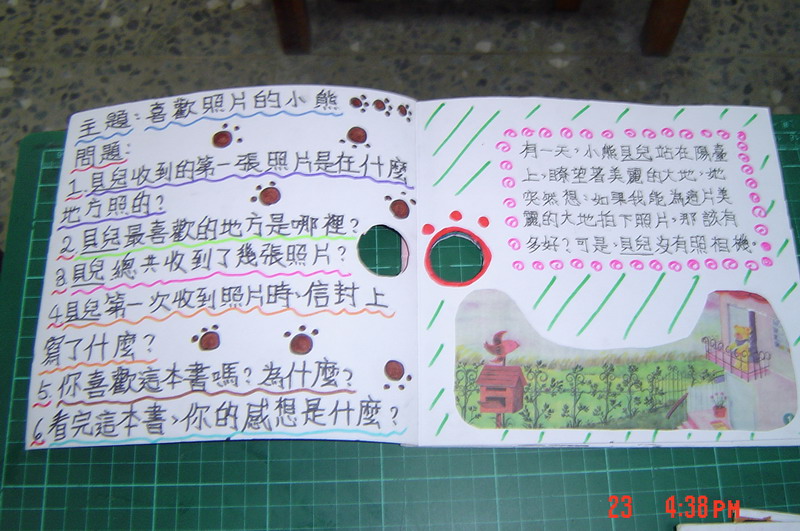 主題:喜歡照片的小熊
問題:
1.貝兒收到的第一張照片是在什麼
地方照的?
2.貝兒最喜歡的地方是哪裡?
3.貝兒總共收到了幾張照片?
4貝兒第一次收到照片時、信封上
寫了什麼?
5.你喜歡這本書嗎?為什麼?
6.看完這本書、你的感想是什麼?
有一天,小熊貝兒站在陽臺
上,瞭望著美麗的大地,她
突然想:如果我能為這片美
麗的大地拍下照片,那該有
多好?可是,貝兒沒有照相機。
23 4:38PM